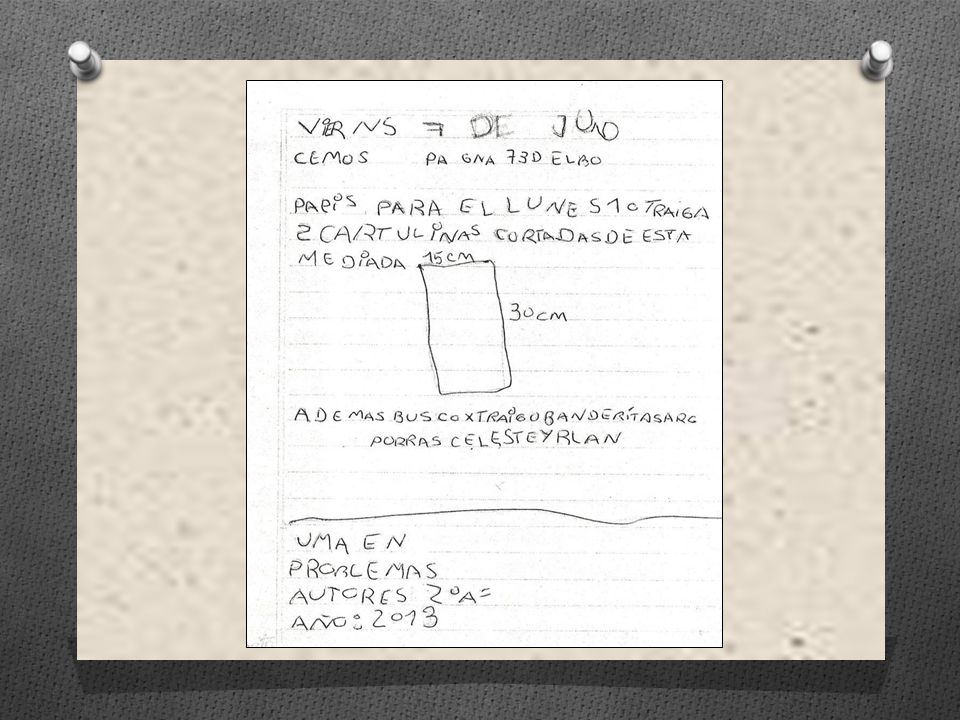 VIERNS 7 DE JUNO
CEMOS PA GNA 73D ELBO
PAPIS PARA EL LUNES 10 TRAIGA
2 CARTULINAS CORTADAS DE ESTA
MEDIADA 15CM
30CM
ADEMAS BUSCO X TRAIGO BANDERITAS ARG
PORRAS CELESTE Y BLAN
UMA EN
PROBLEMAS
AUTORES 2ºA=
AÑO: 2013